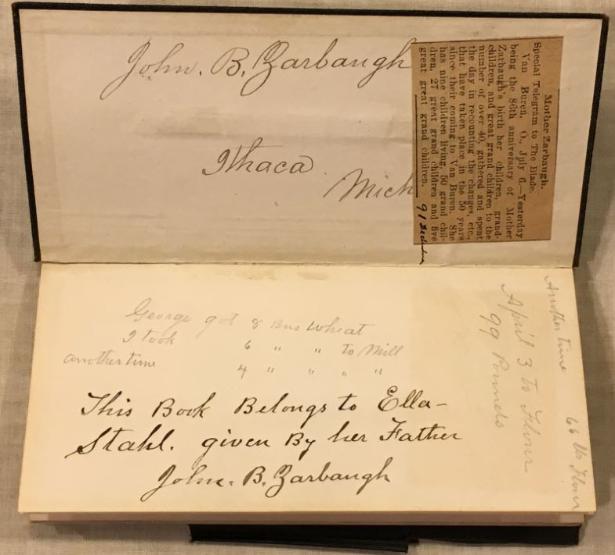 John. B. Zarbaugh
Ithaca
Mich
Mother Zarbaugh.
Special Telegram to The Blade.
Van Buren, O., July 6.—Yesterday
being the 86th anniversary of Mother
Zarbaugh's birth her children, grand-
children, and great grand children to the
number of over 40, gathered and spent
the day in recounting the changes, etc.,
that have taken place in the 50 years
since their coming to Van Buren. She
has nine children living, 50 grand chil-
dren, 27 great grand children and five
great great grand children.
91
George got 8 Bus Wheat
I took 6 " " to Mill
another time 4 " " " "
This Book Belongs to Ella-
Stahl. given By her Father
John. B. Zarbaugh
April 3 to Flour
99 Pounds
Another time 66 lbs Flour